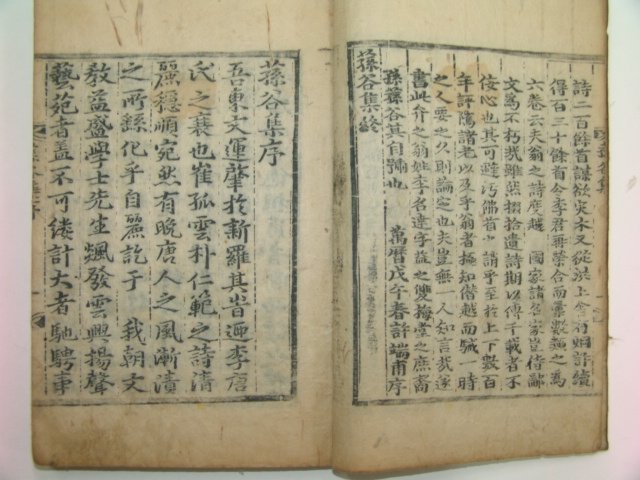 詩二百餘首謀欲灾木又從洪上舍有烱許續
得百三十餘首今李君再榮合而彙數類之爲
六卷云夫翁之詩度越　國家諸名家豈偕鄙
文爲不朽哉雖然掇拾遺詩期以傳千載者不
佞心也其可避汚佛首之誚乎至於上下數百
年評隲諸老以及乎翁者極知僭越而駴一時
之人要之久則論定也夫豈無一人知言哉遂
書此介之翁姓李名達字益之雙梅堂之庶裔
孫蓀谷其自號也　　萬曆戊午春許端甫序
蓀谷集終
蓀谷集序
吾東文運肇於新羅其昔迎李唐
氏之衰也崔孤雲朴仁範之詩清
麗穩順宛然有晚唐人之風漸漬
之所錄化乎自麗訖于　我朝文
教益盛學士先生颯發雲興揚聲
藝苑者盖不可僂計大者馳騁事